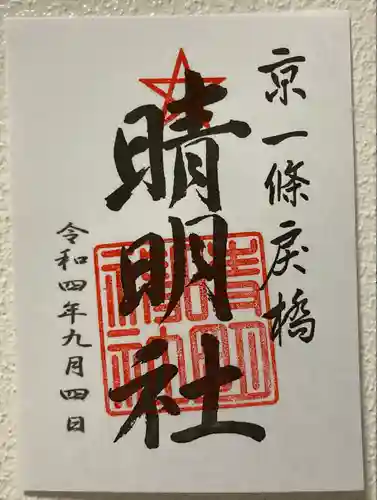 京一條戻橋
晴明社
晴明神社
令和四年九月四日